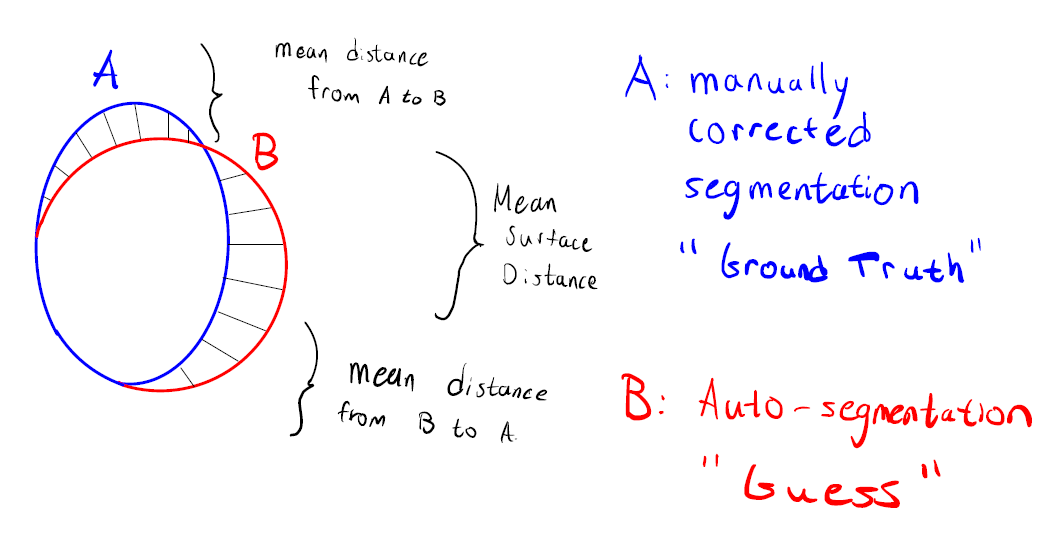 A
mean distance
from A to B
B
Mean
Surface
Distance
mean distance
from B to A.
A: manually
corrected
segmentation
"Ground Truth"
B: Auto-segmentation
"Guess"